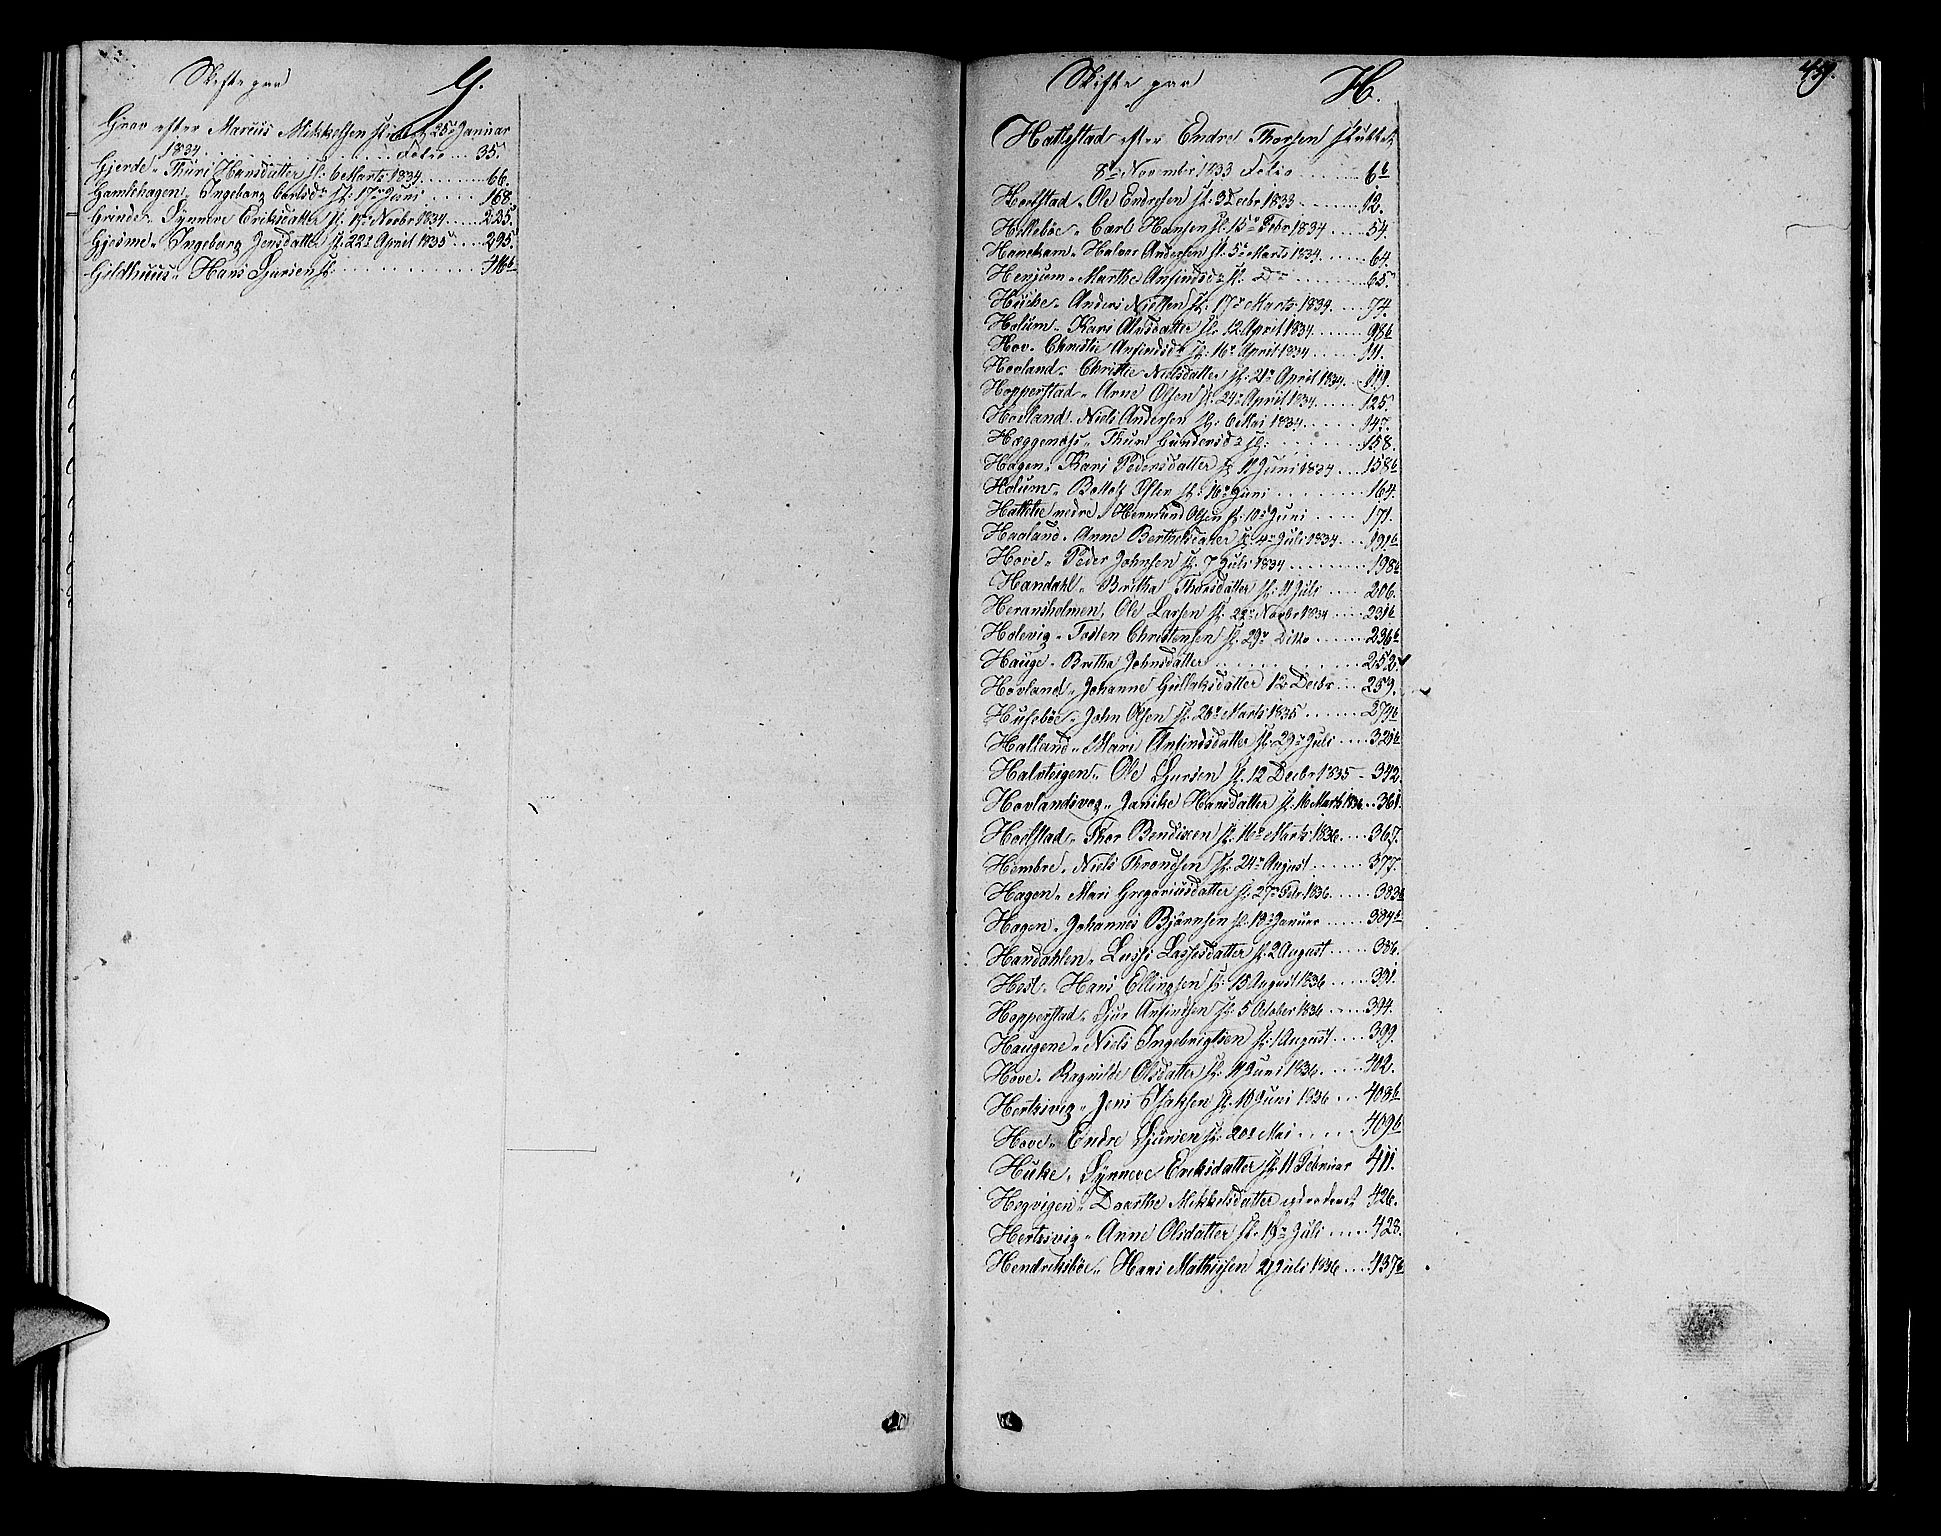 Skifte paa G.
Grov efter Marcus Mikkelsen sl: 25de Januar
1834 . . . . . Folio . . . 35.
Gjerde " Thuri Hansdatter sl: 6 Marts 1834 . . . . 66.
Gamlehagen, Ingeborg Carlsdr sl: 17de Juni . . . . 168.
Grinde " Synneve Eriksdatter sl: 1ste Novbr 1834 . . . 225.
Gjesme " Ingeborg Jensdatter sl: 22de April 1835 . . . 295.
Gildhuus " Hans Siursen sl: . . . . 416b
49.
Skifte paa H.
Hattestad efter Endre Thorsen sluttet
8de November 1833 Folio . . . . 6b
Hoelstad " Ole Endresen sl: 3 Decbr 1833 . . . . 12.
Hillebøe " Carl Hansen sl: 15de Febr 1834 . . . . 54.
Hanekam " Halvor Andersen sl: 5te Marts 1834 . . . . 64.
Henjum " Marthe Anfindsdr sl: Do . . . . 65.
Hüke " Anders Nielsen sl: 17de Marts 1834 . . . 74.
Holum " Kari Olasdatter sl: 12 April 1834 . . . . 98b
Hov " Christie Anfindsdr sl: 16de April 1834 . . . . 111.
Hovland " Christie Nielsdatter sl: 21de April 1834 . . 119.
Hopperstad " Arne Olsen sl: 24de April 1834 . . . . 125.
Hovland " Niels Andersen sl: 6 Mai 1834 . . . . 147.
Hæggenæss " Thuri Gundersdr sl: . . . . 158.
Hagen " Kari Pedersdatter sl: 11 Juni 1834 . . . 158b
Holum " Botolf Olsen sl: 16de Juni . . . . 164.
Hattelie nedre " Hermund Olsen sl: 10de Juni . . . . 171.
Haaland " Anne Berthelsdatter sl: 4de Juli 1834 . . . 191b
Hove " Peder Johnsen sl: 7 Juli 1834 . . . . 198b
Handahl " Britha Thorsdatter sl: 11 Juli . . . . 206.
Heransholmen, Ole Larsen sl: 22de Novbr 1834 . . . . 231b
Holevig " Tosten Christensen sl: 29de Ditto . . . . 236b
Hauge " Britha Johnsdatter . . . . 252.
Hovland " Johanne Gullaksdatter 12 Decbr . . . 259.
Husebøe " John Olsen sl: 26de Marts 1835 . . . . 274b
Halland " Mari Anfindsdatter sl: 29de Juli . . . . 329b
Halvteigen " Ole Siursen sl: 12 Decbr 1835 . 342.
Hovlandsvog " Janike Hansdatter sl: 16 Marts 1836 . . 361.
Hoelstad " Thor Bendixen sl: 16de Marts 1836 . . . . 367.
Hembre " Niels Throndsen sl: 24de August . . . . 377.
Hagen " Mari Gregoriusdatter sl: 27de Febr 1836 . . . . 383b
Hagen " Johannes Bjørnsen sl: 13de Januar . . . . 384b
Handahlen " Lussi Lassesdatter sl: 2 August . . . . 386.
Hest " Hans Ellingsen sl: 18 August 1836 . . . . 391.
Hopperstad " Siur Anfindsen sl: 5 October 1836 . . . . 394.
Haugene " Niels Ingebrigtsen sl: 1 August . . . . 399.
Hove " Ragnilde Olsdatter sl: 11 Juni 1836 . . . . 402.
Hertsvig " Jens Isaksen sl: 10 Juni 1836 . . . 408b
Hove " Endre Siursen sl: 20de Mai . . . . 409b
Hüke " Synneve Eriksdatter sl: 11 Februar 411.
Hogvigen " Daarthe Mikkelsdatter 426.
Hertsvig " Anne Olsdatter sl: 19de Juli . . . . 428.
Hendriksbøe " Hans Mathissen 21 Juli 1836 . . . . 437b